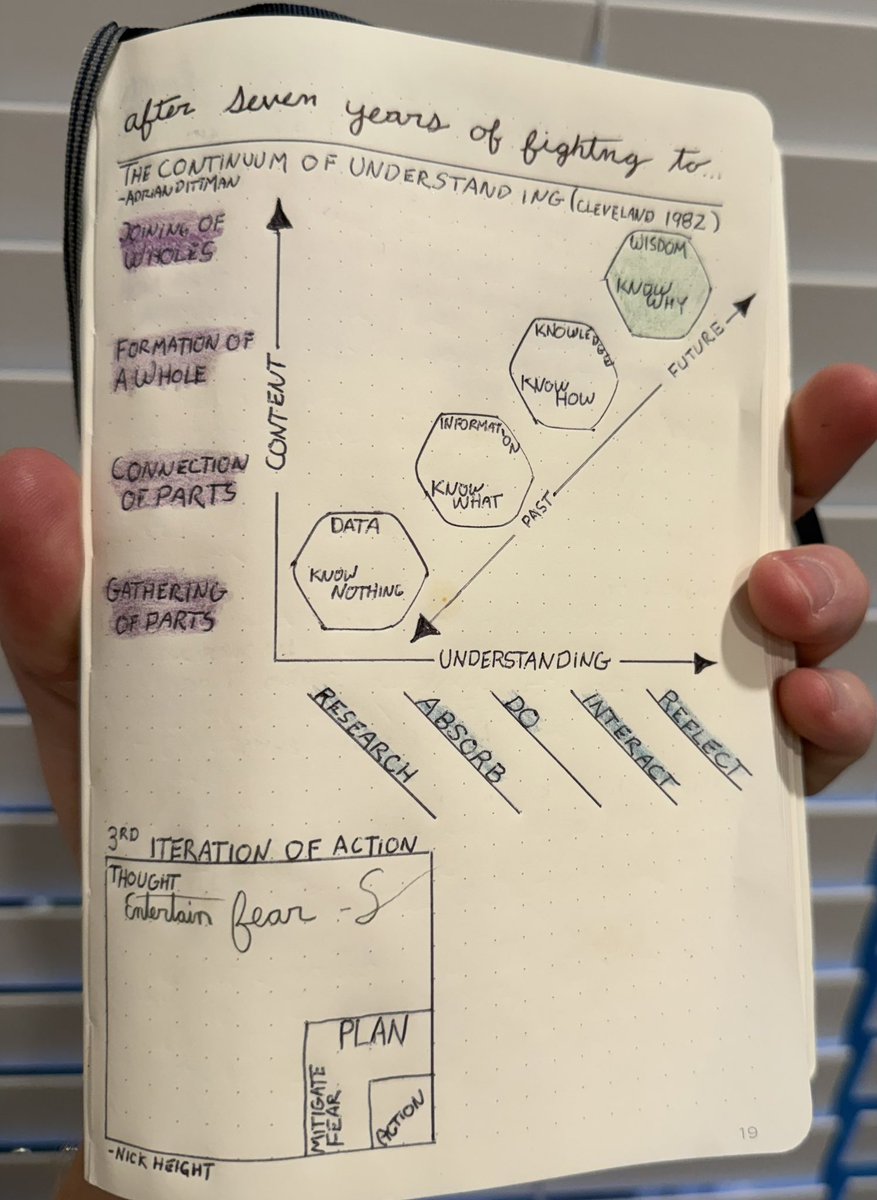 after seven years of fightng to...
THE CONTINUUM OF UNDERSTANDING (CLEVELAND 1982)
-ADRIAN DITTMAN
JOINING OF
WHOLES
FORMATION OF
A WHOLE
CONNECTION
OF PARTS
GATHERING
OF PARTS
CONTENT
WISDOM
KNOW
WHY
KNOWLEDGE
KNOW
HOW
INFORMATION
KNOW
WHAT
DATA
KNOW
NOTHING
FUTURE
PAST
UNDERSTANDING
RESEARCH
ABSORB
DO
INTERACT
REFLECT
3RD ITERATION OF ACTION
THOUGHT
Entertain fear -S
PLAN
MITIGATE
FEAR
ACTION
-NICK HEIGHT
19